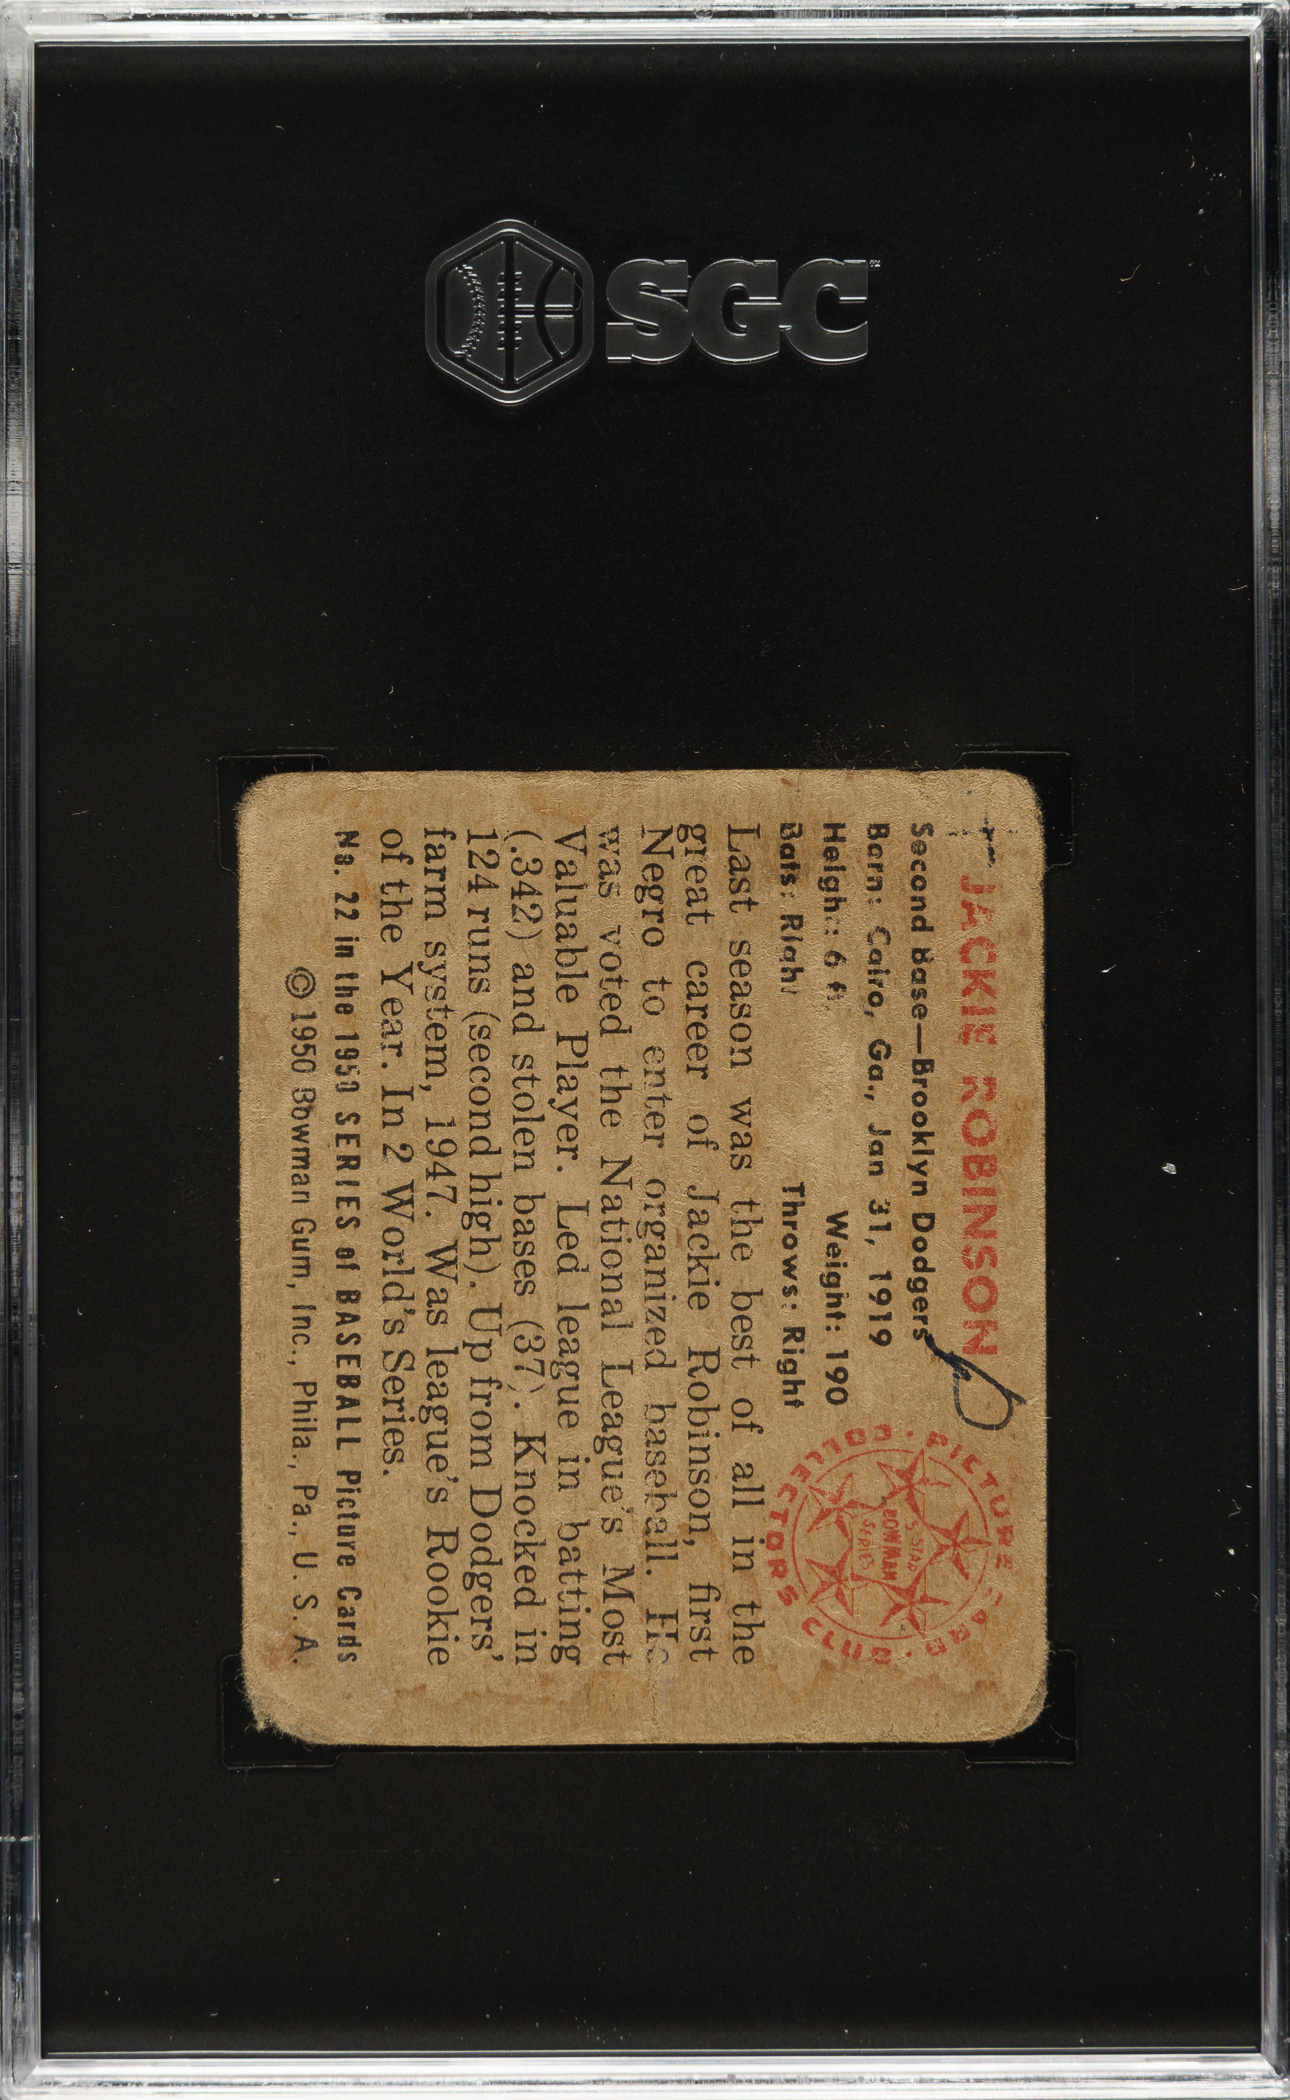 SGC
JACKIE ROBINSON
Second Base—Brooklyn Dodgers
Born: Cairo, Ga., Jan 31, 1919
Height: 6 ft. Weight: 190
Bats: Right Throws: Right
PICTURE CARD COLLECTORS CLUB
5-STAR
BOWMAN
SERIES
Last season was the best of all in the
great career of Jackie Robinson, first
Negro to enter organized baseball. He
was voted the National League's Most
Valuable Player. Led league in batting
(.342) and stolen bases (37). Knocked in
124 runs (second high). Up from Dodgers'
farm system, 1947. Was league's Rookie
of the Year. In 2 World's Series.
No. 22 in the 1950 SERIES of BASEBALL Picture Cards
©1950 Bowman Gum, Inc., Phila., Pa., U. S. A.